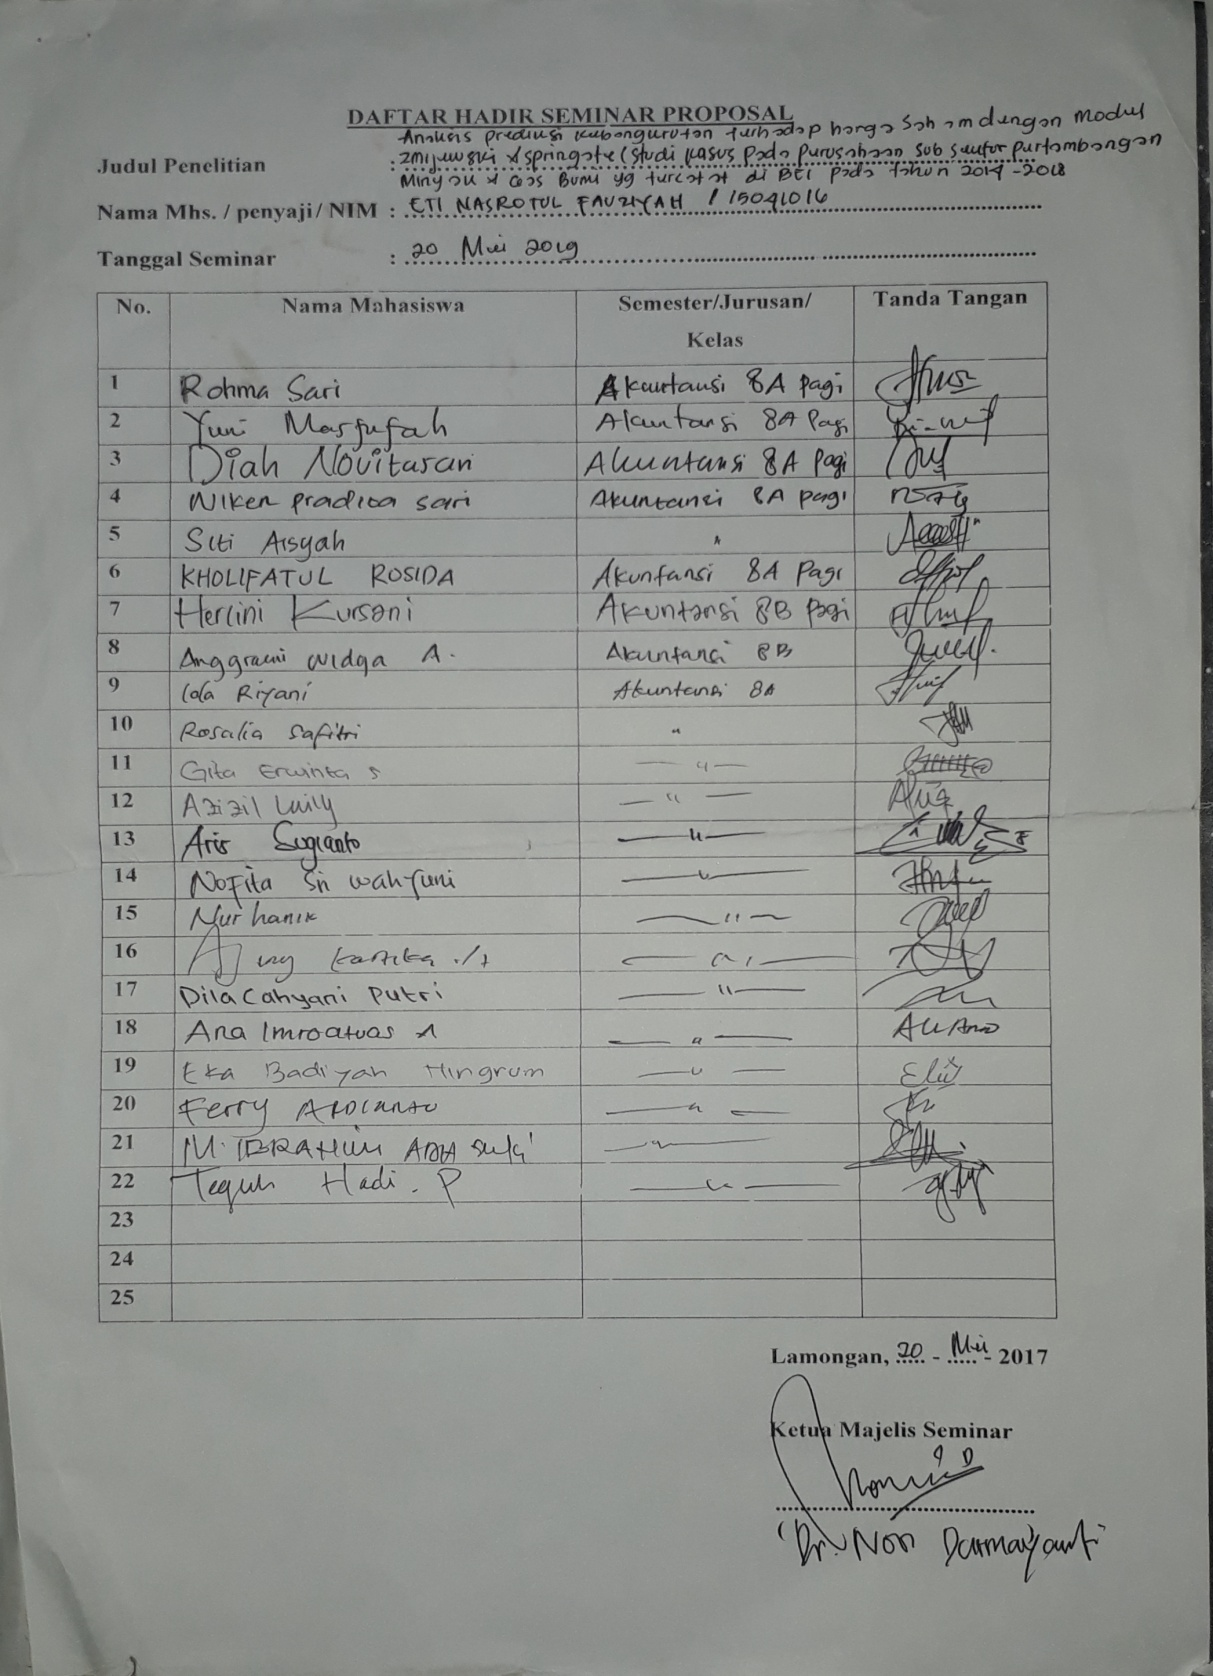 DAFTAR HADIR SEMINAR PROPOSAL
Analisis prediksi kebangkrutan terhadap harga saham dengan Model
Judul Penelitian : zmijewski & springate (studi kasus pada perusahaan sub sektor pertambangan
Minyak & Gas Bumi yg tercatat di BEI pada tahun 2014 - 2018
Nama Mhs. / penyaji/ NIM : ETI NASROTUL FAUZIYAH / 15041016
Tanggal Seminar : 20 Mei 2019
No. Nama Mahasiswa Semester/Jurusan/ Tanda Tangan
Kelas
1 Rohma Sari Akuntansi 8A pagi
2 Yuni Masfufah Akuntansi 8A Pagi
3 Diah Novitasari Akuntansi 8A Pagi
4 Niken pradita sari Akuntansi 8A pagi
5 Siti Aisyah "
6 KHOLIFATUL ROSIDA Akuntansi 8A Pagi
7 Herlini Kursani Akuntansi 8B Pagi
8 Anggraini widya A. Akuntansi 8B
9 Lola Riyani Akuntansi 8A
10 Rosalia Safitri "
11 Gita Erwinta S — " —
12 Azizil Laily — " —
13 Aris Sugianto — " —
14 Nofita Sri wahyuni — " —
15 Nur hanik — " —
16 kartika — " —
17 Dila Cahyani Putri — " —
18 Ana Imroatuas A — " —
19 Eka Badiyah Ningrum — " —
20 Ferry ARDIANTO — " —
21 M. IBRAHIM — " —
22 Teguh Hadi. P — " —
23
24
25
Lamongan, 20 - Mei - 2017
Ketua Majelis Seminar
Dr. Nori Darmayanti